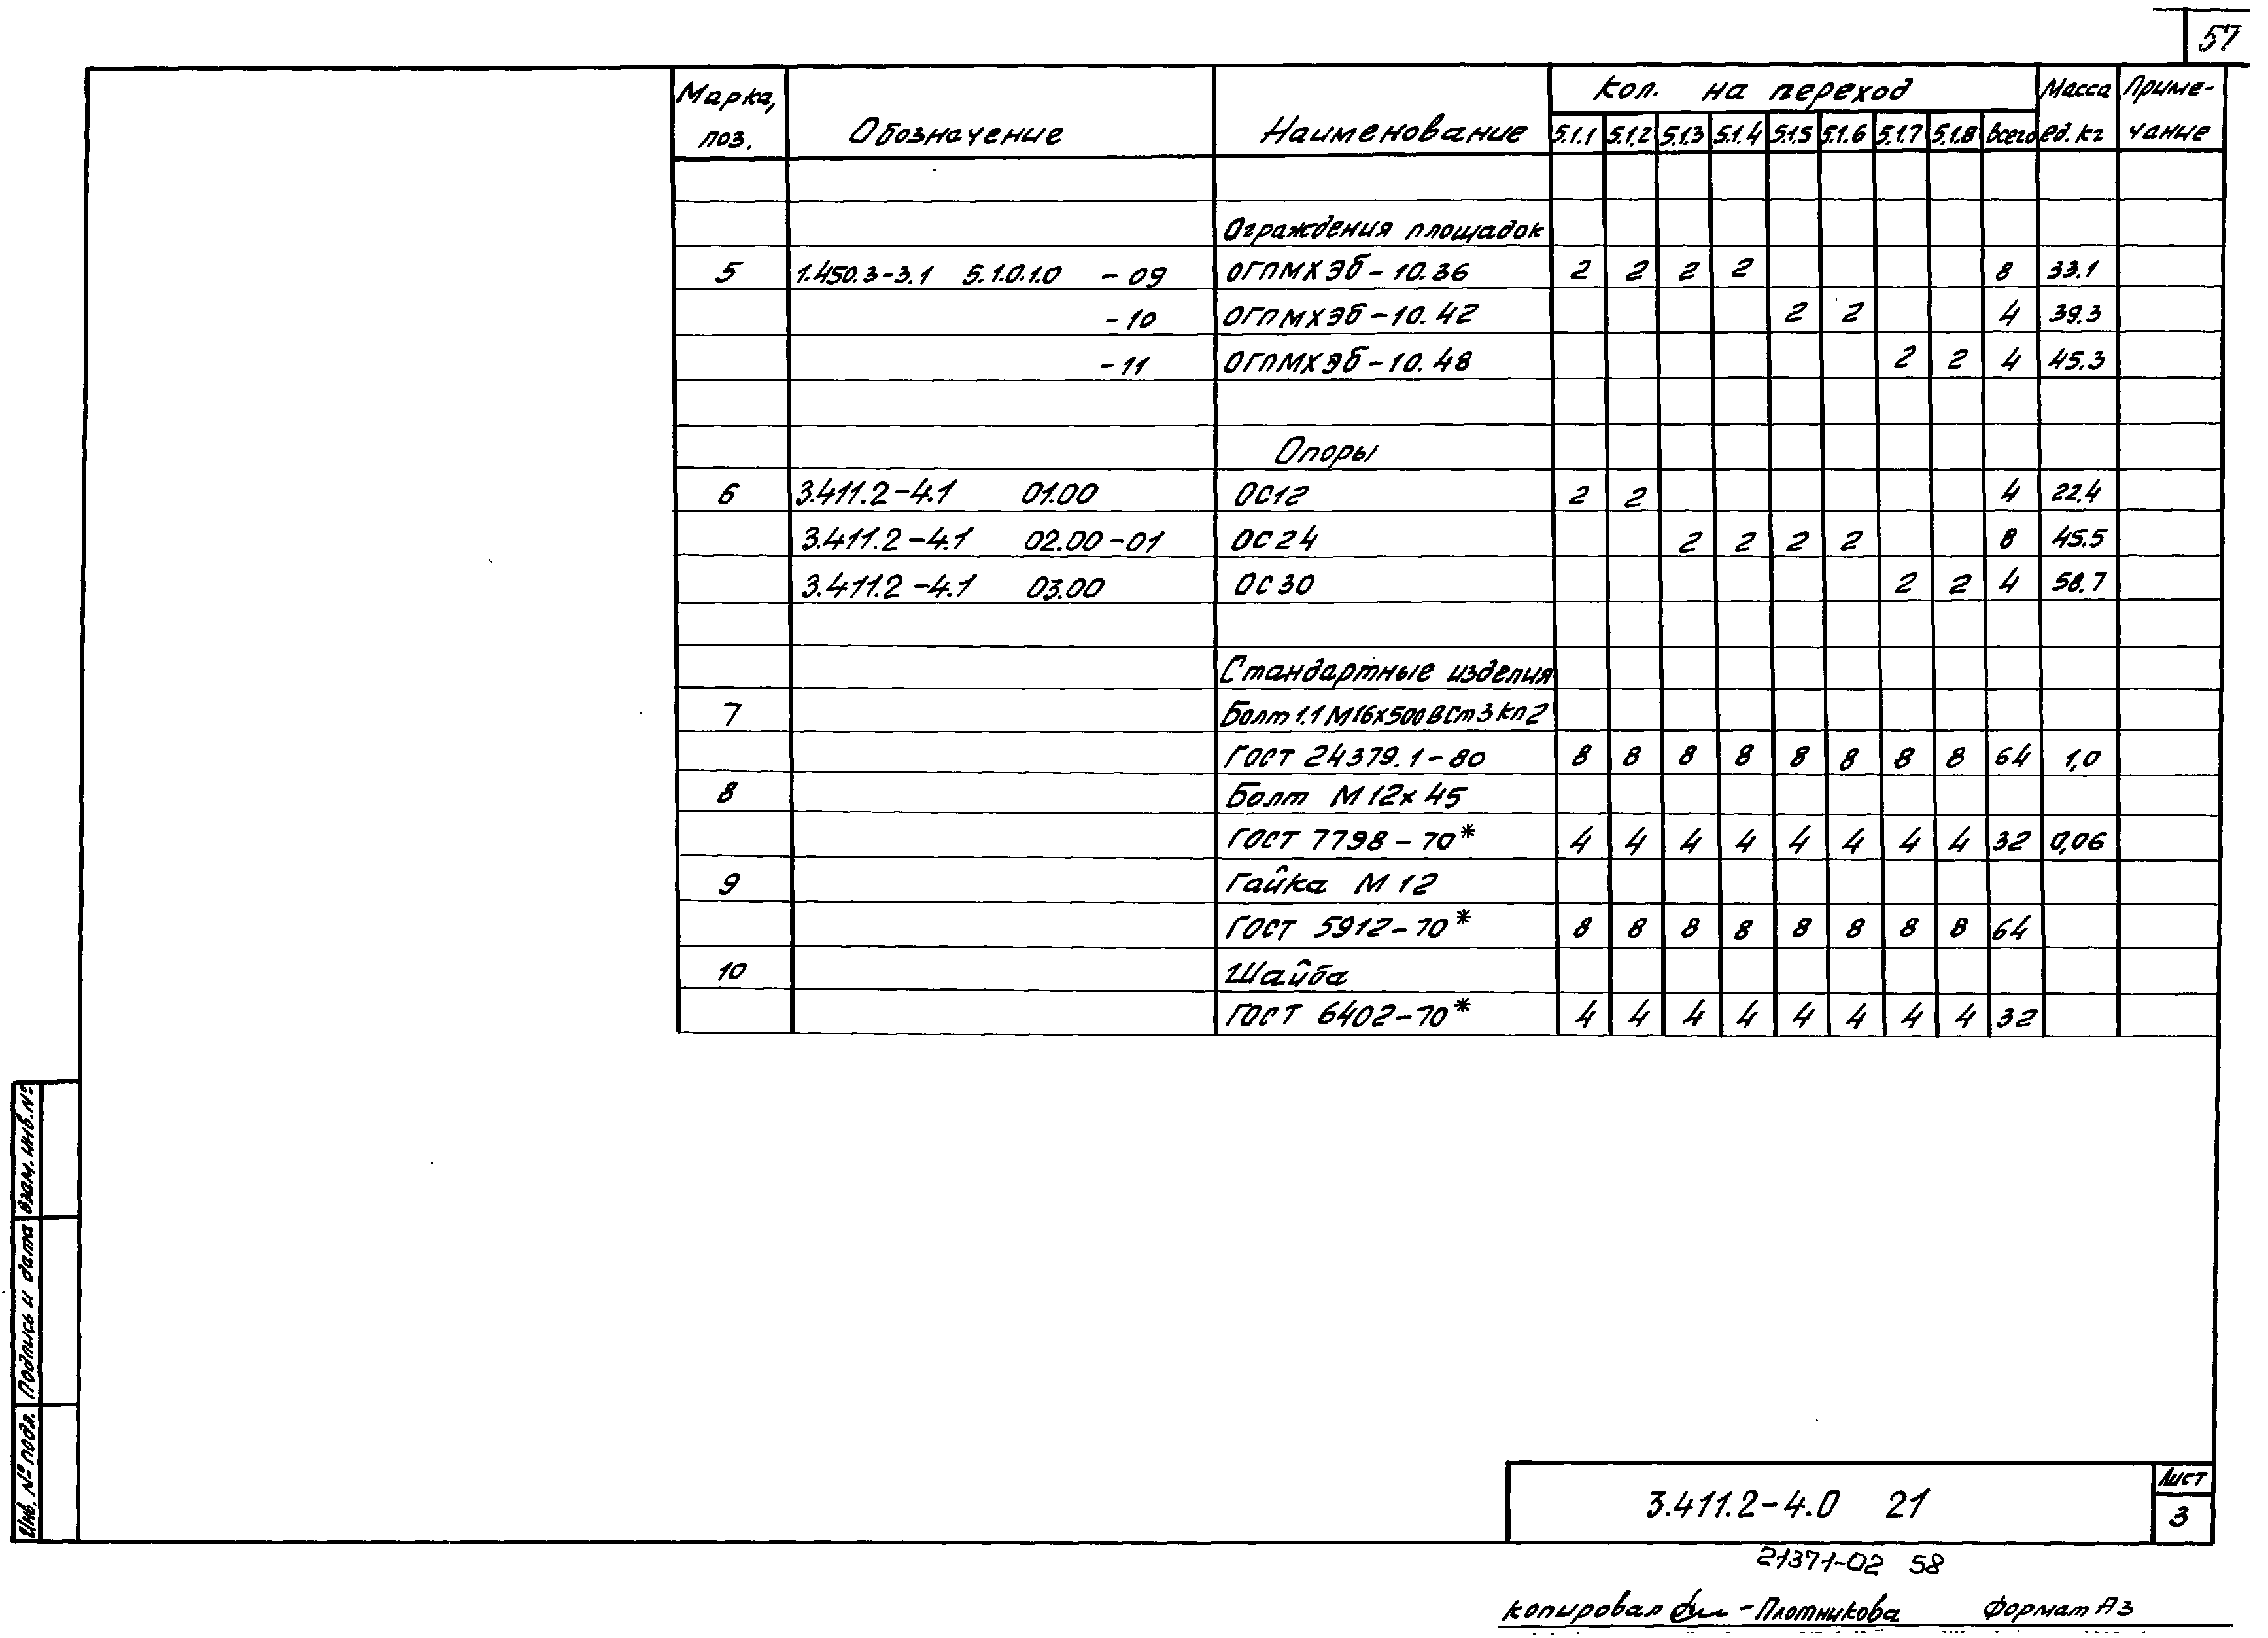 57
Марка, поз. Обозначение Наименование Кол. на переход Масса ед. кг Приме-чание
5.1.1 5.1.2 5.1.3 5.1.4 5.1.5 5.1.6 5.1.7 5.1.8 всего
Ограждения площадок
5 1.450.3-3.1 5.1.0.1.0 -09 ОГПМХЭБ-10.36 2 2 2 2 8 33.1
-10 ОГПМХЭБ-10.42 2 2 4 39.3
-11 ОГПМХЭБ-10.48 2 2 4 45.3
Опоры
6 3.411.2-4.1 01.00 ОС12 2 2 4 22.4
3.411.2-4.1 02.00-01 ОС24 2 2 2 2 8 45.5
3.411.2-4.1 03.00 ОС30 2 2 4 58.7
Стандартные изделия
7 Болт 1.1 М16х500 ВСт3кп2
ГОСТ 24379.1-80 8 8 8 8 8 8 8 8 64 1,0
8 Болт М12х45
ГОСТ 7798-70* 4 4 4 4 4 4 4 4 32 0,06
9 Гайка М12
ГОСТ 5912-70* 8 8 8 8 8 8 8 8 64
10 Шайба
ГОСТ 6402-70* 4 4 4 4 4 4 4 4 32
Взам. инв. №
Подпись и дата
Инв. № подл.
3.411.2-4.0 21
Лист
3
21371-02 58
Копировал -Плотникова Формат А3